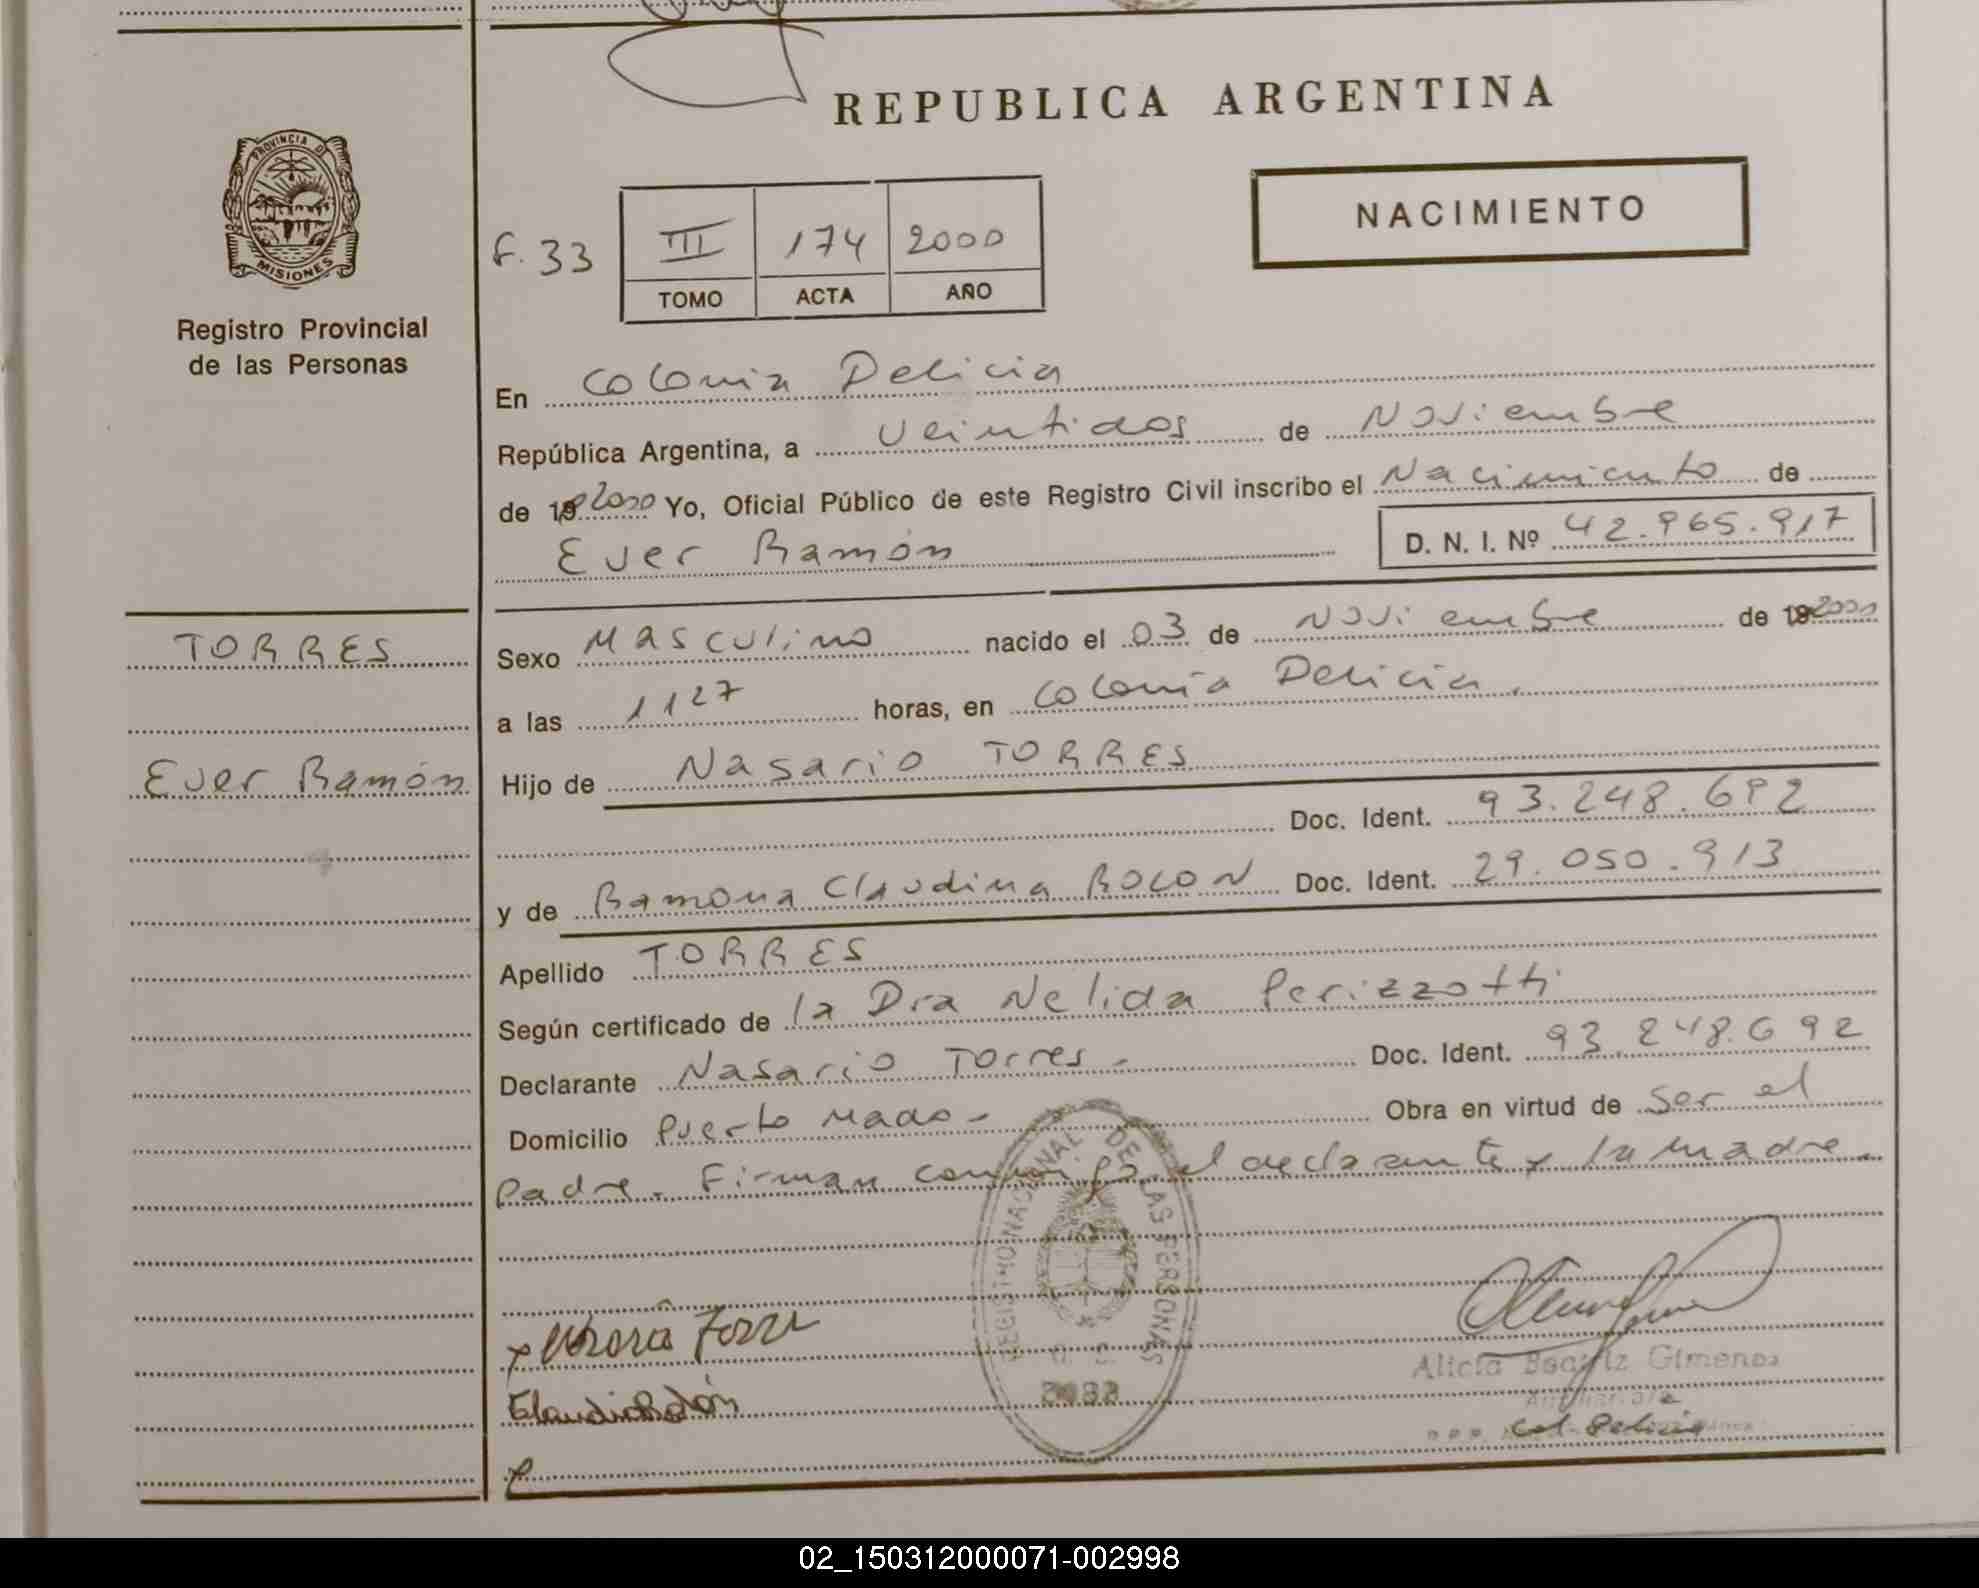 REPUBLICA ARGENTINA
PROVINCIA DE
MISIONES
Registro Provincial
de las Personas
NACIMIENTO
F. 33
III 174 2000
TOMO ACTA AÑO
En Colonia Delicia
República Argentina, a veintidos de Noviembre
de 19 2000 Yo, Oficial Público de este Registro Civil inscribo el Nacimiento de
Ever Ramón D. N. I. Nº 42.965.917
TORRES
Ever Ramón
Sexo Masculino nacido el 03 de Noviembre de 19 2000
a las 1127 horas, en Colonia Delicia.
Hijo de Nasario TORRES
Doc. Ident. 93.248.692
y de Ramona Claudina ROLON Doc. Ident. 29.050.913
Apellido TORRES
Según certificado de la Dra Nelida Perizzotti
Declarante Nasario Torres - Doc. Ident. 93.248.692
Domicilio Puerto Mado - Obra en virtud de ser el
Padre. Firman conmigo el declarante y la madre.
REGISTRO NACIONAL DE LAS PERSONAS
Alicia Beatriz Gimenez
Col. Delicia
02_150312000071-002998